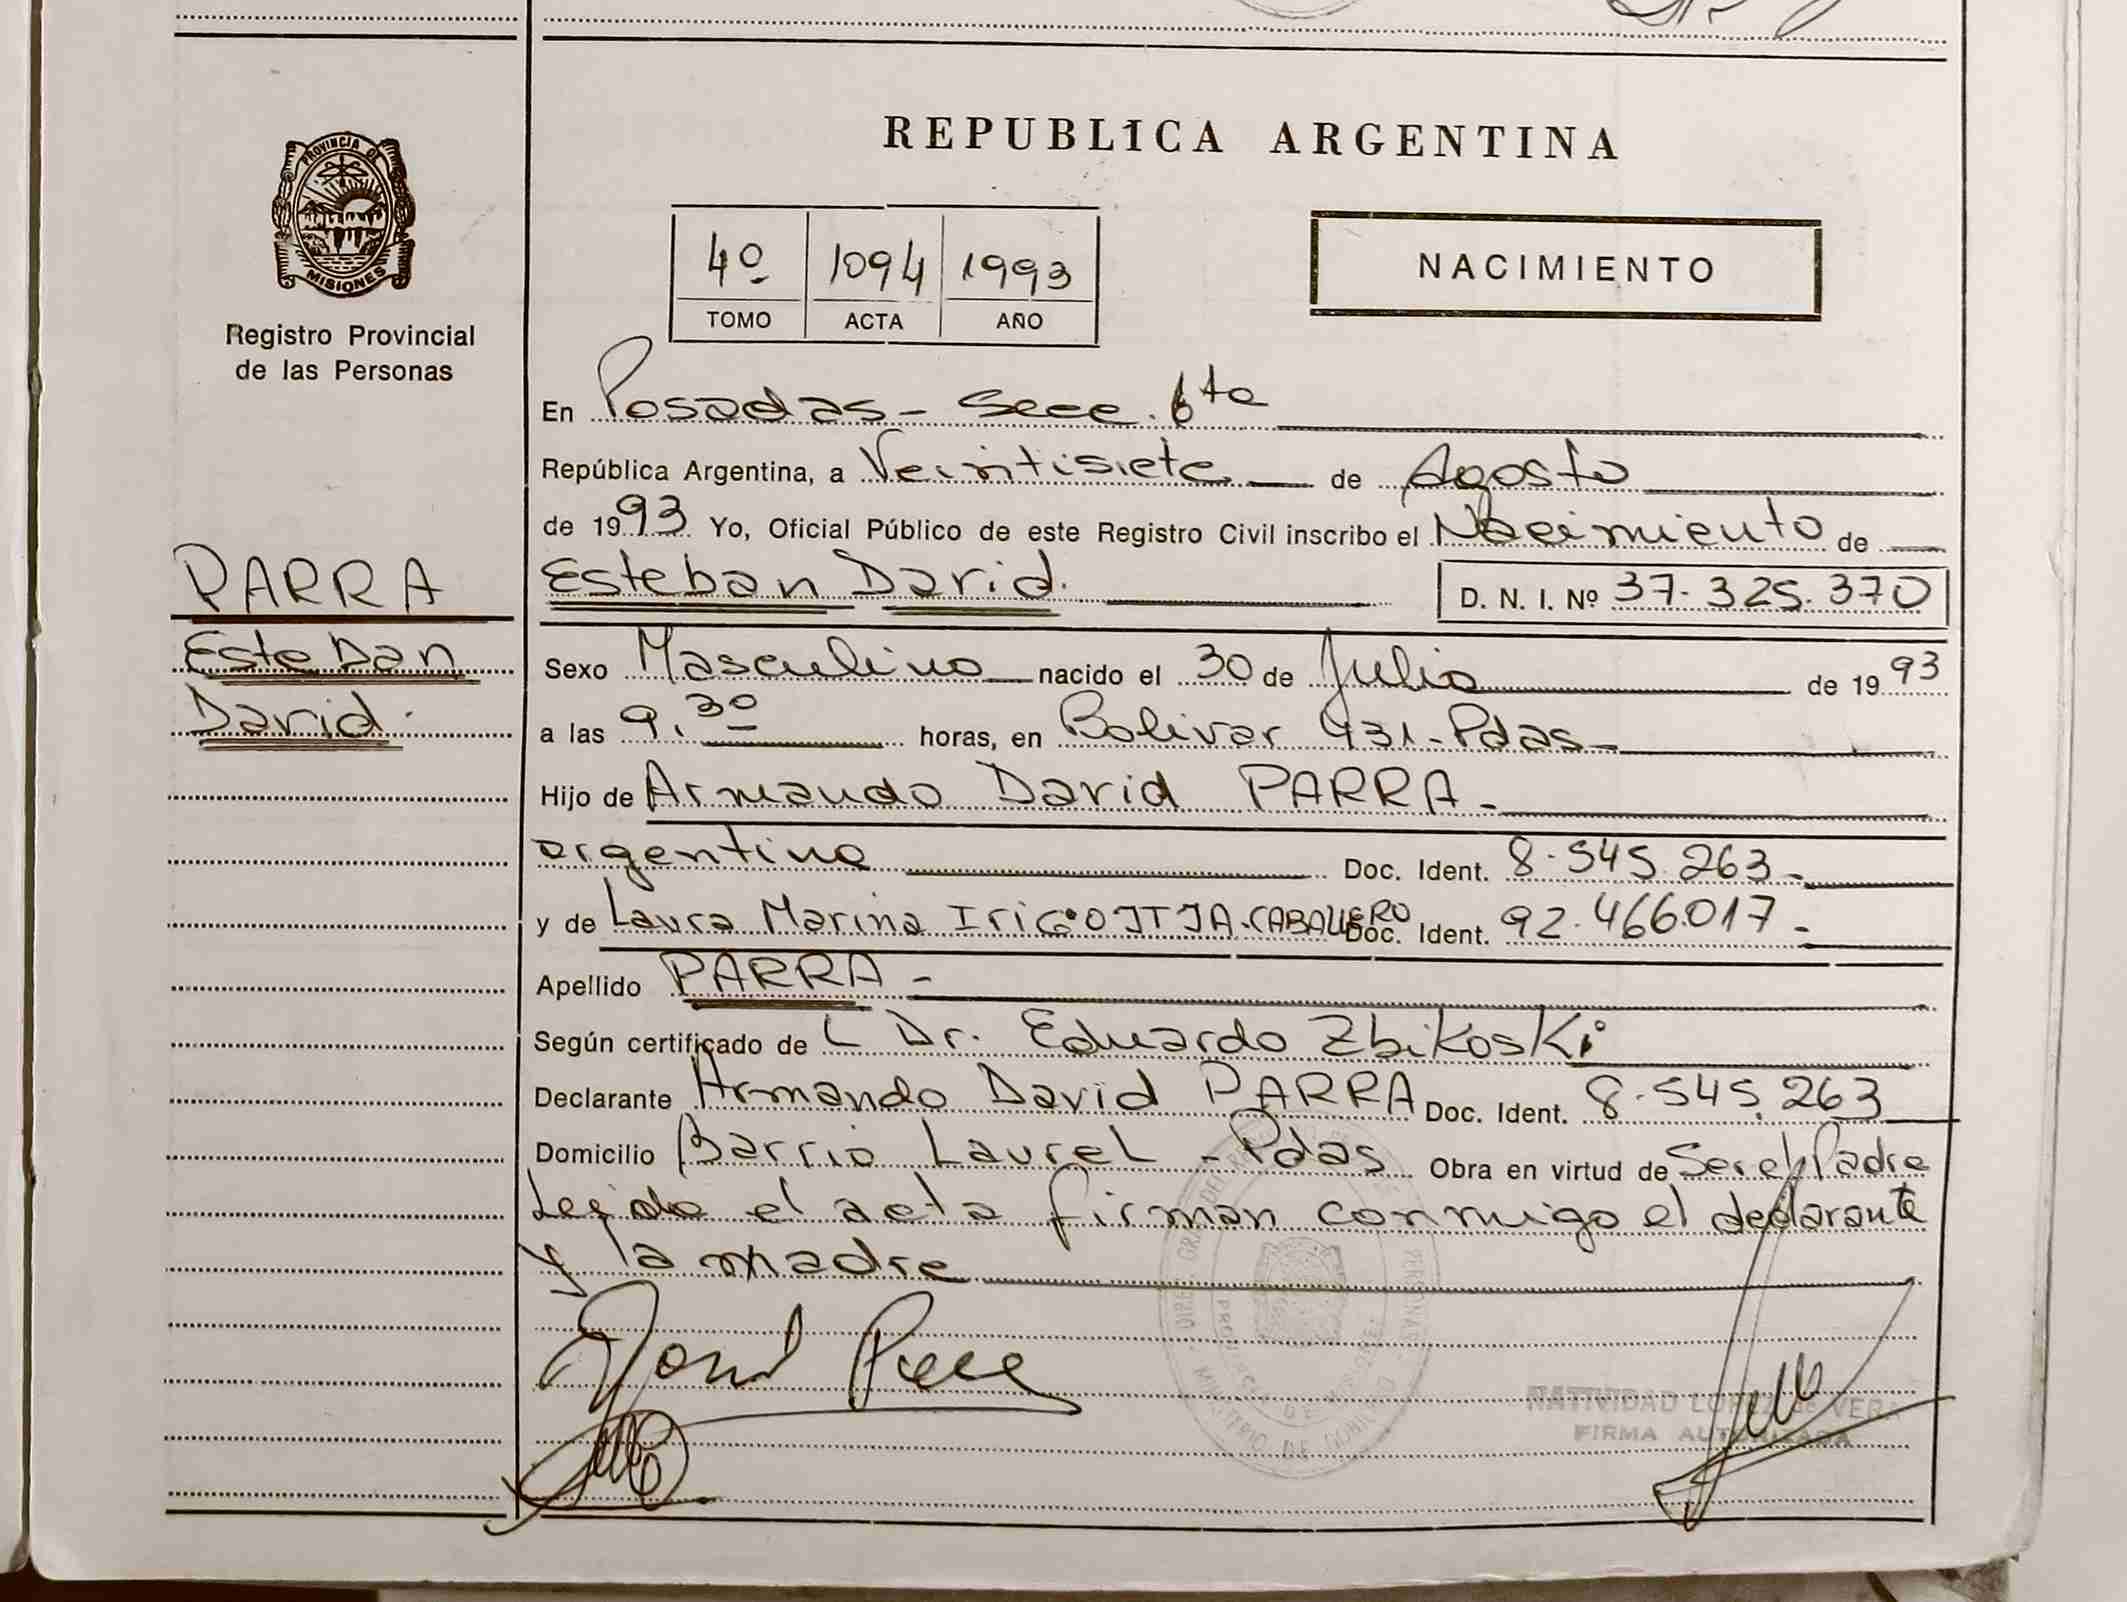 PROVINCIA DE
MISIONES
Registro Provincial
de las Personas
PARRA
Esteban
David.
REPUBLICA ARGENTINA
4º 1094 1993
TOMO ACTA AÑO
NACIMIENTO
En Posadas - Secc. 6ta
República Argentina, a Veintisiete de Agosto
de 1993 Yo, Oficial Público de este Registro Civil inscribo el Nacimiento de
Esteban David. D. N. I. Nº 37.325.370
Sexo Masculino nacido el 30 de Julio de 1993
a las 9.30 horas, en Bolivar 931 - Pdas -
Hijo de Armando David PARRA -
argentino Doc. Ident. 8.545.263 -
y de Laura Marina IRIGOITIA - CABALLERO Doc. Ident. 92.466.017 -
Apellido PARRA -
Según certificado de L Dr. Eduardo Zbikoski
Declarante Armando David PARRA Doc. Ident. 8.545.263
Domicilio Barrio Laurel - Pdas Obra en virtud de Ser el Padre
Leida el acta firman conmigo el declarante
y la madre
NATIVIDAD LOPEZ de VERA
FIRMA AUTORIZADA